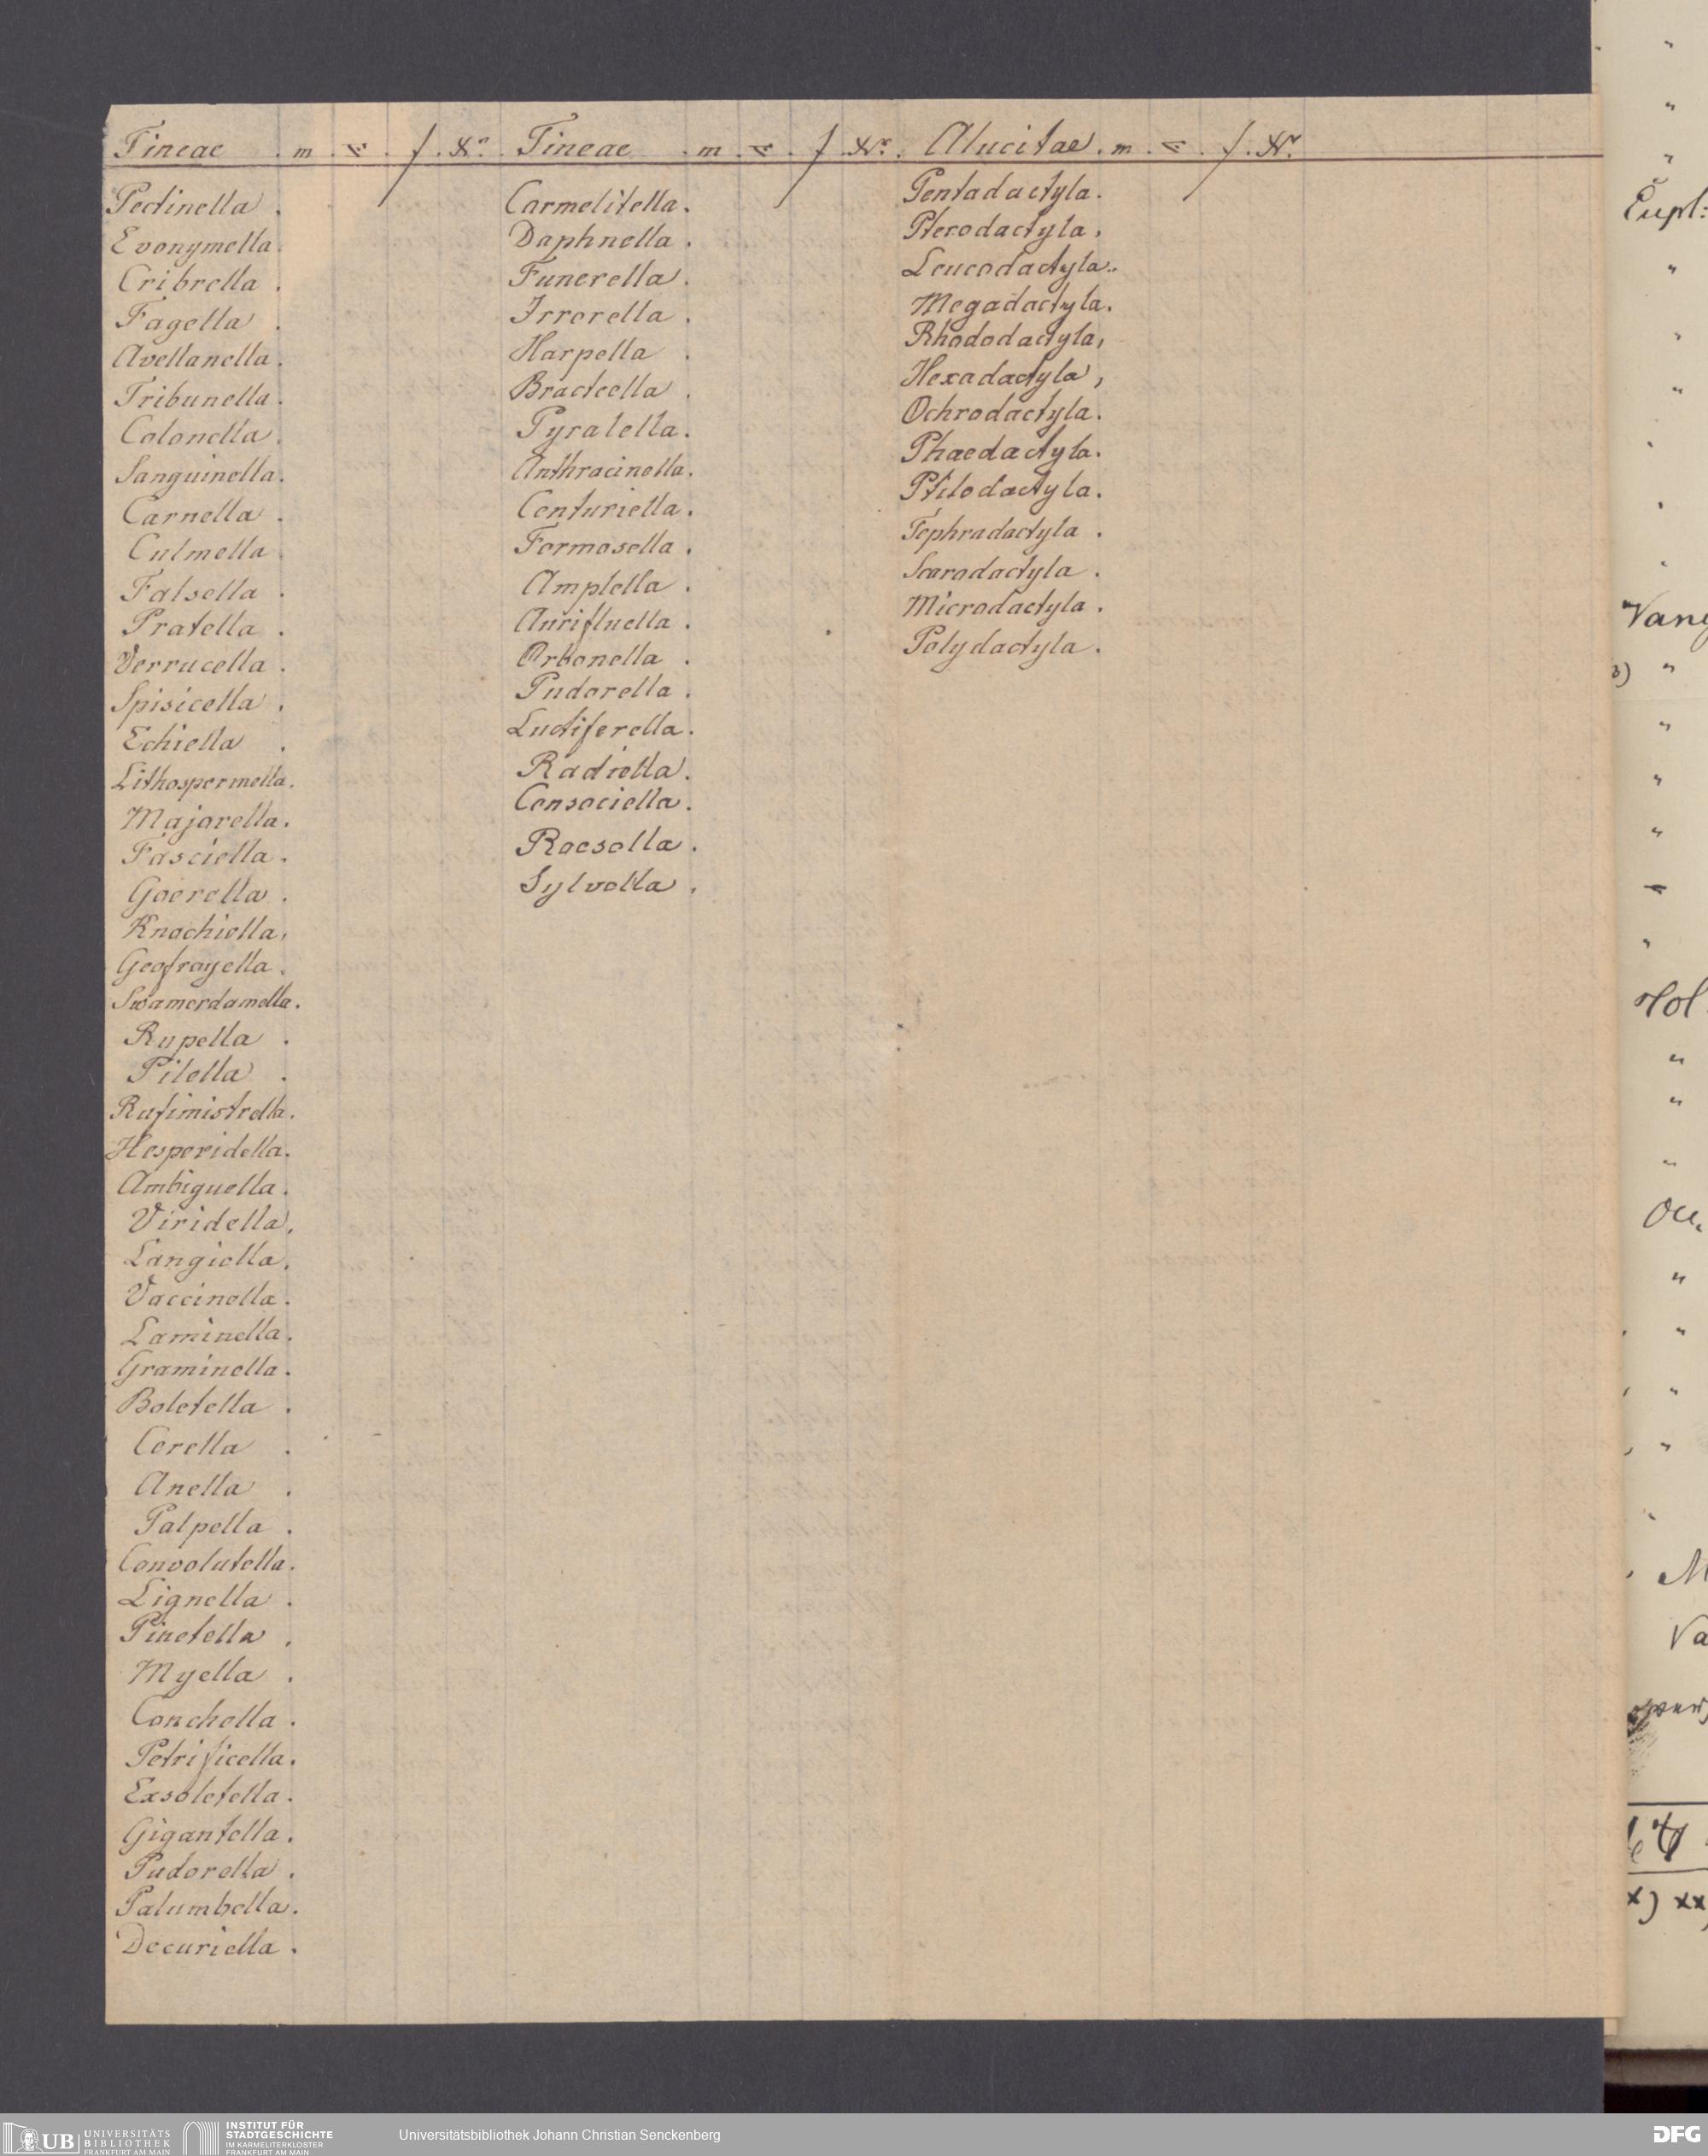 Tineae . m . = . f . Nr.
Pectinella .
Evonymella .
Cribrella .
Fagella .
Avellanella .
Tribunella .
Colonella .
Sanguinella .
Carnella .
Culmella
Falsella .
Pratella .
Verrucella .
Spisicella .
Echiella .
Lithospermella .
Majorella .
Fasciella .
Goerella .
Knochiella ,
Geofroyella .
Swamerdamella .
Rupella .
Pilella .
Rufimistrella .
Hesperidella .
Ambiguella .
Viridella ,
Langiella ,
Vaccinella .
Laminella .
Graminella .
Boletella .
Cerella .
Anella .
Palpella .
Convolutella .
Lignella .
Pinetella ,
Myella .
Conchella .
Petrificella .
Exsoletella .
Gigantella .
Pudorella .
Palumbella .
Decuriella .
Tineae . m . = . f . Nr.
Carmelitella .
Daphnella .
Funerella .
Irrorella .
Harpella .
Bracteella .
Pyralella .
Anthracinella .
Centuriella .
Formosella .
Amplella .
Aurifluella .
Arbonella .
Pudorella .
Luctiferella .
Radiella .
Consociella .
Roesella .
Sylvella ,
Alucitae . m . = . f . Nr.
Pentadactyla .
Pterodactyla ,
Leucodactyla .
Megadactyla .
Rhododactyla ,
Hexadactyla ,
Ochrodactyla .
Phaedactyla .
Ptilodactyla .
Tephradactyla .
Scarodactyla .
Microdactyla .
Polydactyla .
Eupl:
Hol
UB UNIVERSITÄTS
BIBLIOTHEK
FRANKFURT AM MAIN
INSTITUT FÜR
STADTGESCHICHTE
IM KARMELITERKLOSTER
FRANKFURT AM MAIN
Universitätsbibliothek Johann Christian Senckenberg
DFG